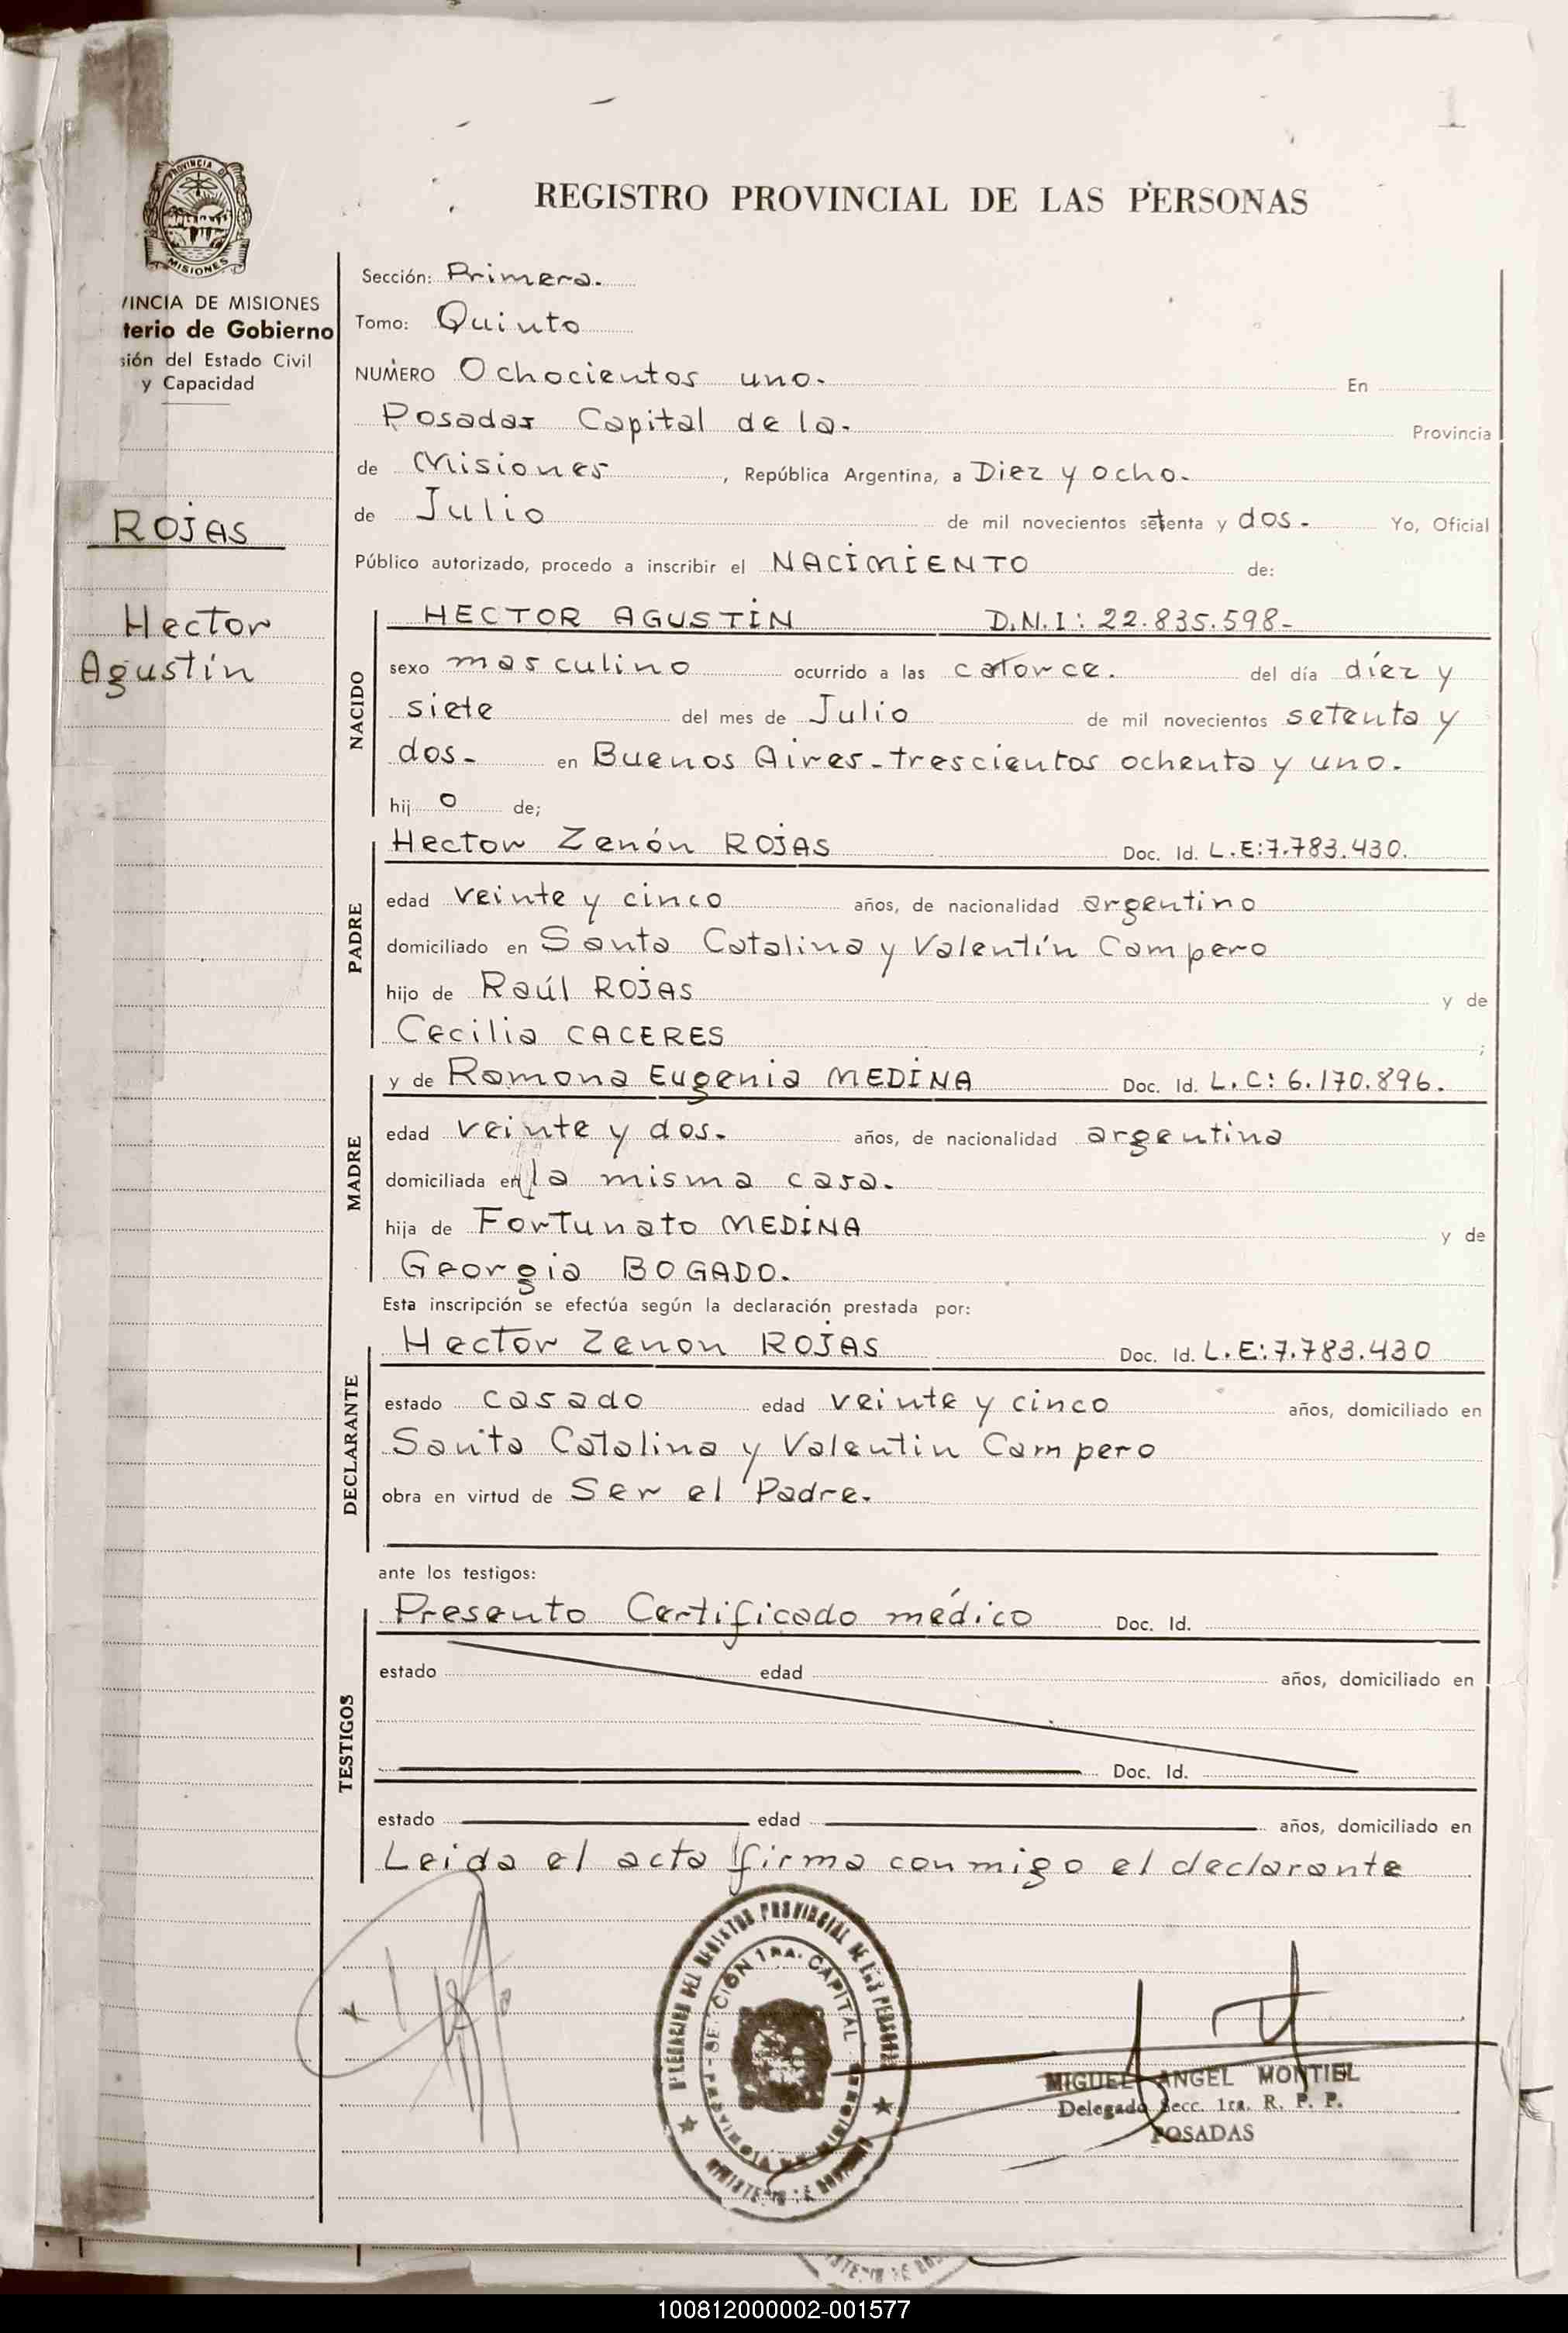 PROVINCIA DE
MISIONES
VINCIA DE MISIONES
terio de Gobierno
sión del Estado Civil
y Capacidad
ROJAS
Hector
Agustín
REGISTRO PROVINCIAL DE LAS PERSONAS
Sección: Primera.
Tomo: Quinto
NUMERO Ochocientos uno. En
Posadas Capital de la. Provincia
de Misiones, República Argentina, a Diez y ocho.
de Julio de mil novecientos setenta y dos. Yo, Oficial
Público autorizado, procedo a inscribir el NACIMIENTO de:
NACIDO
HECTOR AGUSTIN D.N.I: 22.835.598-
sexo masculino ocurrido a las catorce. del día díez y
siete del mes de Julio de mil novecientos setenta y
dos- en Buenos Aires-trescientos ochenta y uno.
hij o de;
PADRE
Hector Zenón ROJAS Doc. Id. L.E:7.783.430.
edad veinte y cinco años, de nacionalidad argentino
domiciliado en Santa Catalina y Valentín Campero
hijo de Raúl ROJAS y de
Cecilia CACERES ;
MADRE
y de Ramona Eugenia MEDINA Doc. Id. L.C: 6.170.896.
edad veinte y dos. años, de nacionalidad argentina
domiciliada en la misma casa.
hija de Fortunato MEDINA y de
Georgia BOGADO.
Esta inscripción se efectúa según la declaración prestada por:
DECLARANTE
Hector Zenon ROJAS Doc. Id. L.E:7.783.430
estado casado edad veinte y cinco años, domiciliado en
Santa Catalina y Valentin Campero
obra en virtud de Ser el Padre.
ante los testigos:
TESTIGOS
Presento Certificado médico Doc. Id.
estado edad años, domiciliado en
Doc. Id.
estado edad años, domiciliado en
Leida el acta firma conmigo el declarante
DEL REGISTRO PROVINCIAL DE LAS PERSONAS
SECCIÓN 1RA. CAPITAL
MIGUEL ANGEL MONTIEL
Delegado Secc. 1ra. R. P. P.
POSADAS
100812000002-001577